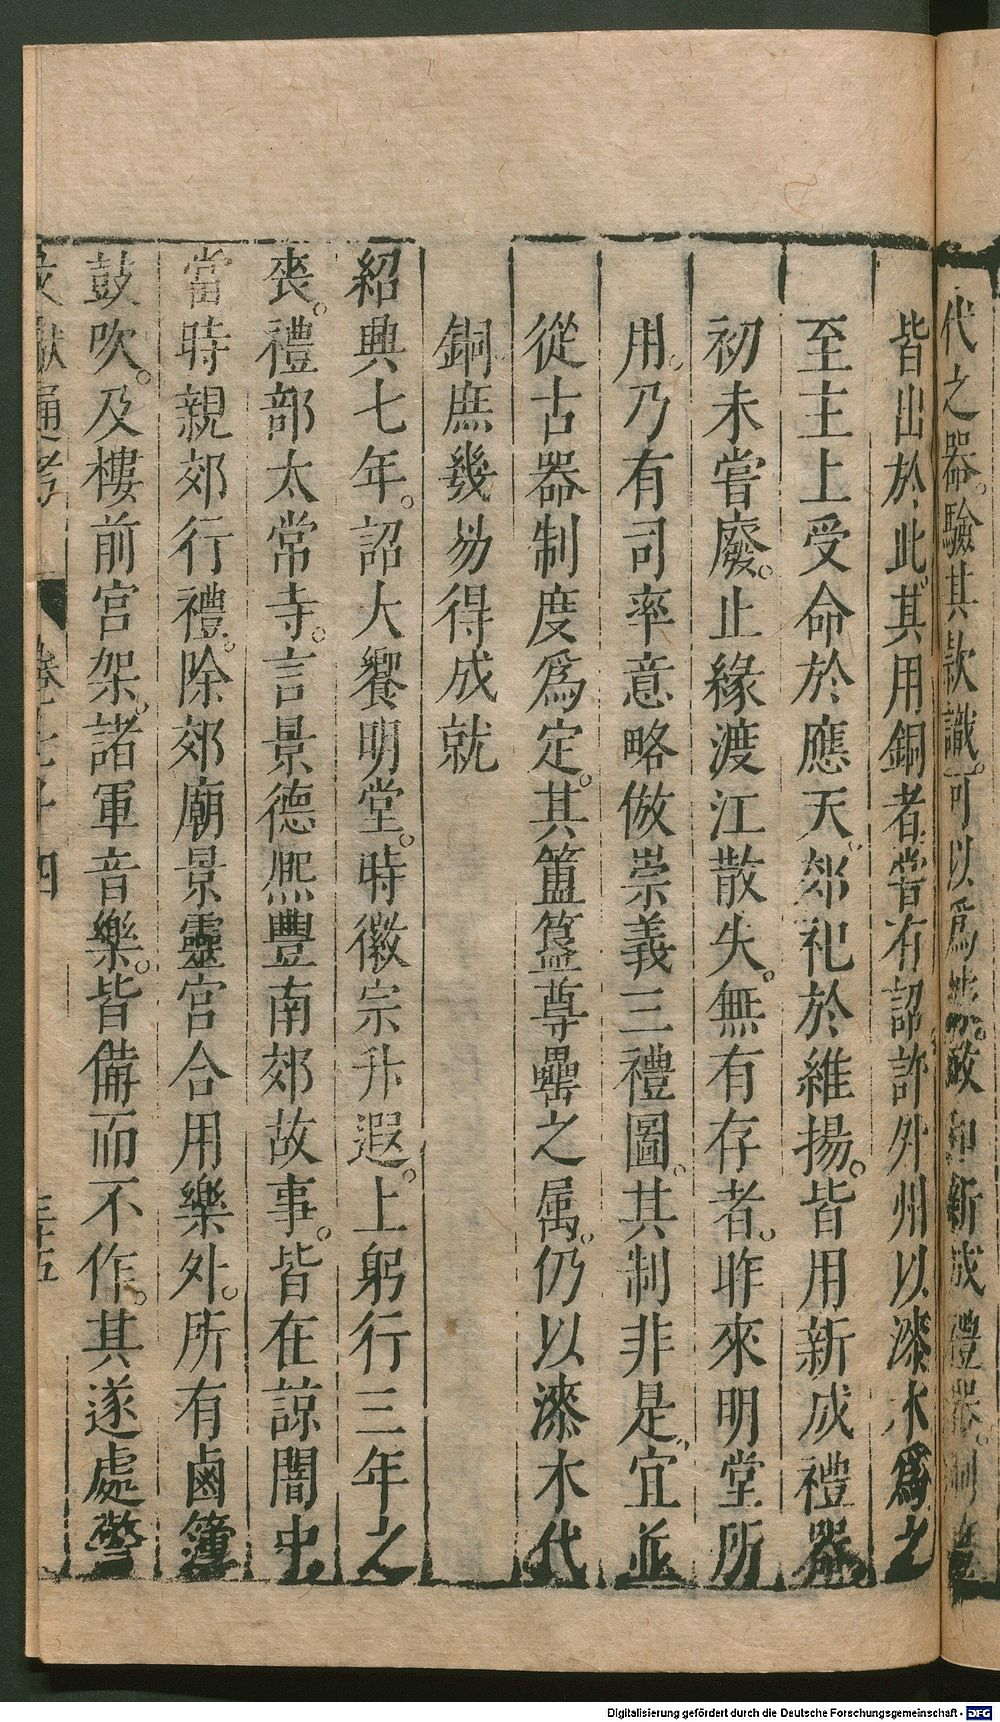 代之器。驗其款識。可以爲據。故即新成禮器。制度
皆出於此。其用銅者。嘗有詔許外州以漆木爲之
至主上受命於應天。郊祀於維揚。皆用新成禮器。
初未嘗廢。止緣渡江散失。無有存者。昨來明堂所
用。乃有司率意略倣崇義三禮圖。其制非是。宜並
從古器制度爲定。其簠簋尊罍之属。仍以漆木代
銅庶幾易得成就
紹興七年。詔大饗明堂。時徽宗升遐。上躬行三年之
喪。禮部太常寺。言景德熈豐南郊故事。皆在諒闇中
當時親郊行禮。除郊廟景靈宮合用樂外。所有鹵簿
鼓吹。及樓前宮架。諸軍音樂。皆備而不作。其遂處警
文獻通考 卷七十四 三十五
Digitalisierung gefördert durch die Deutsche Forschungsgemeinschaft - DFG